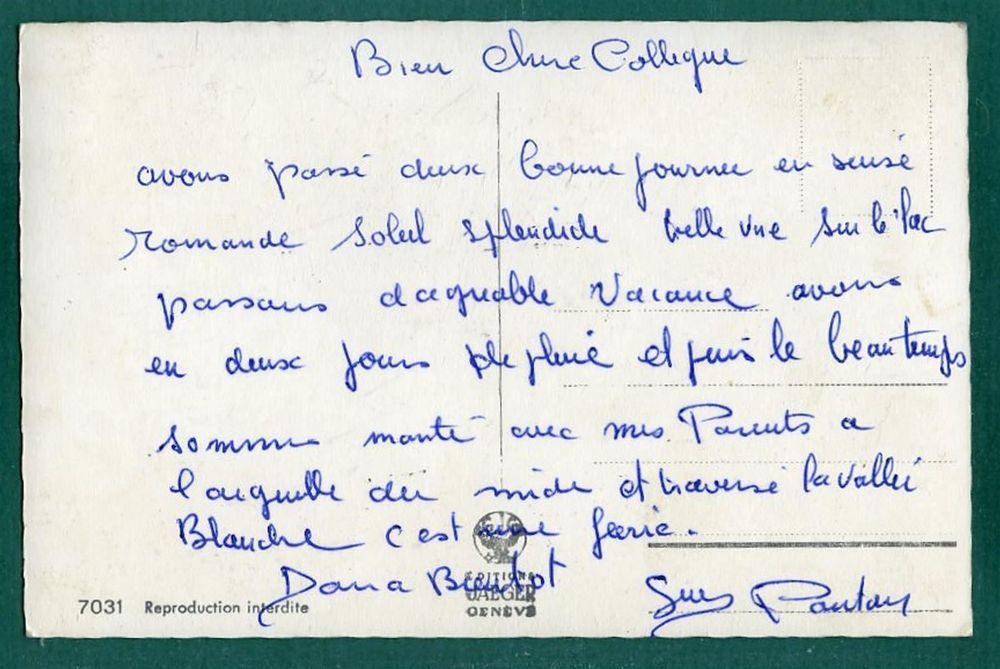 Bien Chere Collegue
avons passé deux bonne journee en suisé
romande Soleil splendide belle vue sur le lac
passons d agreable Vacance avons
eu deux jours de pluie et puis le beau temps
sommes monté avec mes Parents a
l aiguille du midi et traversé la vallée
Blanche c est une féerie.
Bientot
EDITIONS
JAEGER
GENEVE
7031 Reproduction interdite